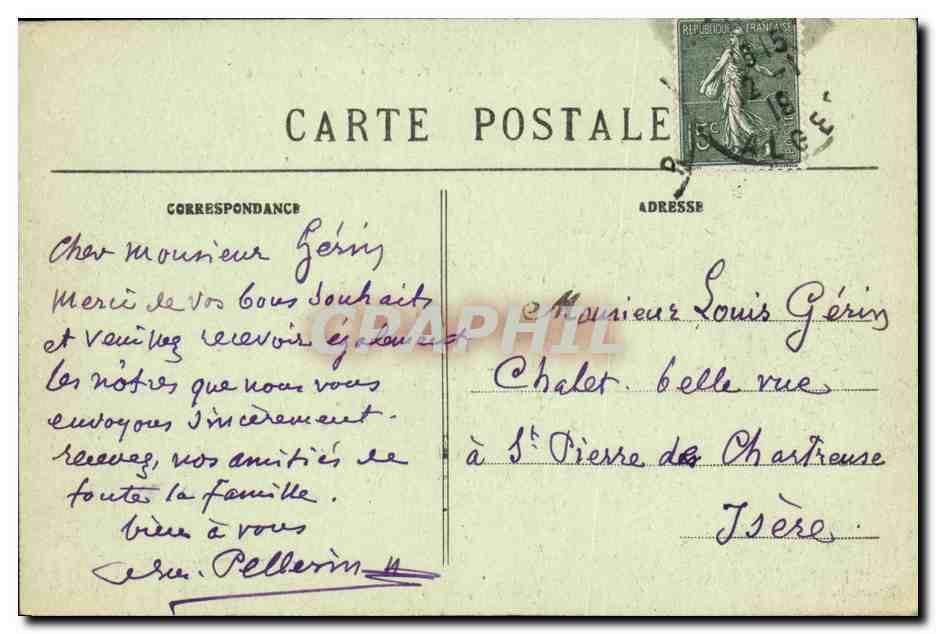 RÉPUBLIQUE FRANÇAISE
15c
ALGE
CARTE POSTALE
CORRESPONDANCE
Cher Monsieur Gérin
Merci de vos bons souhaits
et veuillez recevoir également
les nôtres que nous vous
envoyons sincèrement.
recevez, nos amitiés de
toute la famille.
bien à vous
Pellerin
ADRESSE
Monsieur Louis Gérin
Chalet. belle vue
à St. Pierre de Chartreuse
Isère.
CPAPHIL